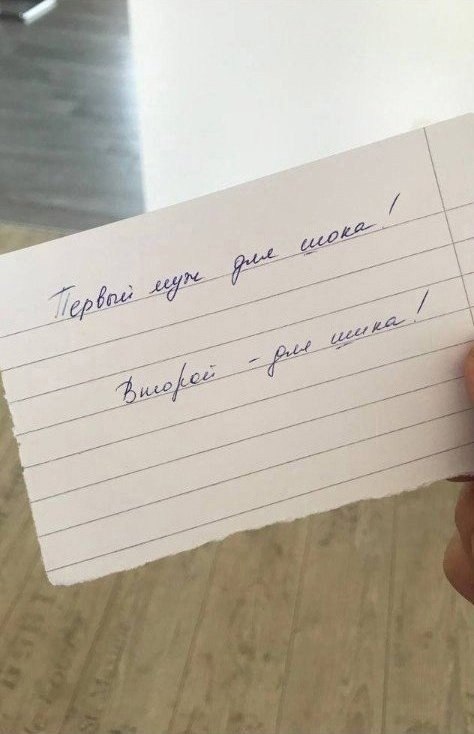 Первый муж для шока!
Второй - для шика!